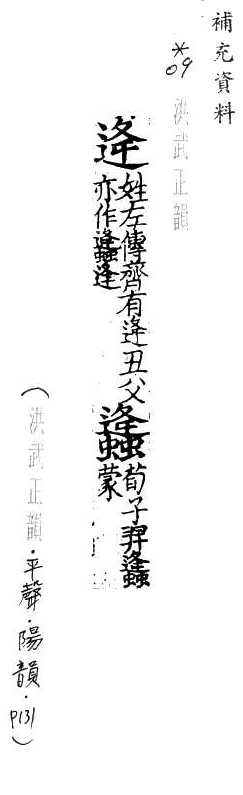 補充資料
*09
洪武正韻
逄 姓左傳齊有逄丑父
亦作䗬逢
䗬 荀子羿䗬
蒙
(洪武正韻·平聲·陽韻·P131)